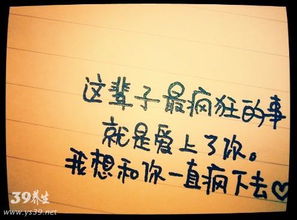 这辈子最疯狂的事
就是爱上了你。
我想和你一直疯下去♡
39养生
www.ys39.net